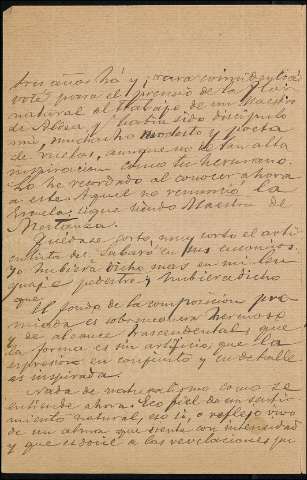 tres años há y ¡rara coincidencia!
voté para el premio de la Flor
natural al trabajo de un Maestro
de había sido discípulo
mío, muchacho modesto y poeta
de vuelos, aunque no de tan alta
inspiración como su hermano.
Lo he recordado al conocer ahora
a este. Aquel no renunció la
Escuela: sigue siendo Maestro de
Matanza.
Quédase corto, muy corto el arti-
culista de en sus encomios.
Yo hubiera dicho mas en mi len-
guaje pedestre; hubiera dicho
que
El fondo de la composición pre-
miada es sobremanera hermoso
y de alcance trascendental; que
la forma es sin artificio; que la
expresión en conjunto y en detalle
es inspirada.
Nada de naturalismo como se
entiende ahora. Eco fiel de un senti-
miento natural, eso sí, o reflejo vivo
de un alma que siente con intensidad
y que es dócil a las revelaciones